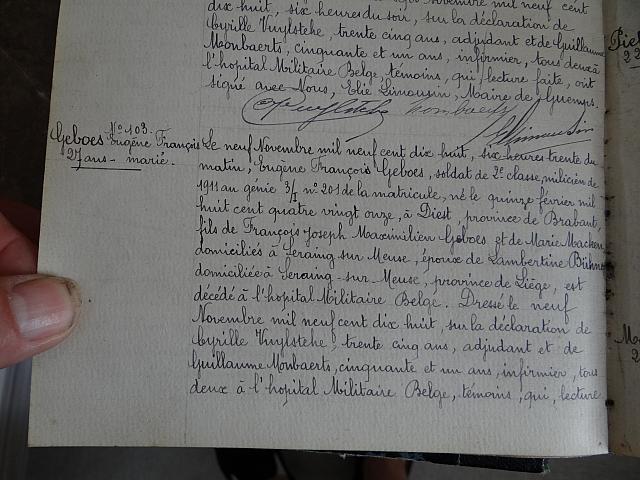 dix huit, six heures du soir, sur la déclaration de
Cyrille Vuylsteke, trente cinq ans, adjudant et de Guillaume
Monbaerts, cinquante et un ans, infirmier, tous deux à
l'hopital Militaire Belge témoins, qui, lecture faite, ont
signé avec Nous, Elie Limousin, Maire de Guemps.
Nº 103.
Geboes Eugène François
27 ans - marié.
Le neuf Novembre mil neuf cent dix huit, six heures trente du
matin, Eugène François Geboes, soldat de 2e classe, milicien de
1911 au génie 3/I nº 201 de la matricule, né le quinze février mil
huit cent quatre vingt onze, à Diest, province de Brabant,
fils de François Joseph Maximilien Géboes et de Marie Macken
domiciliés à Seraing sur Meuse, époux de Lambertine
domiciliée à Seraing-sur-Meuse, province de Liège, est
décédé à l'hopital Militaire Belge. Dressé le neuf
Novembre mil neuf cent dix huit, sur la déclaration de
Cyrille Vuylsteke, trente cinq ans, adjudant et de
Guillaume Monbaerts, cinquante et un ans, infirmier, tous
deux à l'hopital Militaire Belge, témoins, qui, lecture